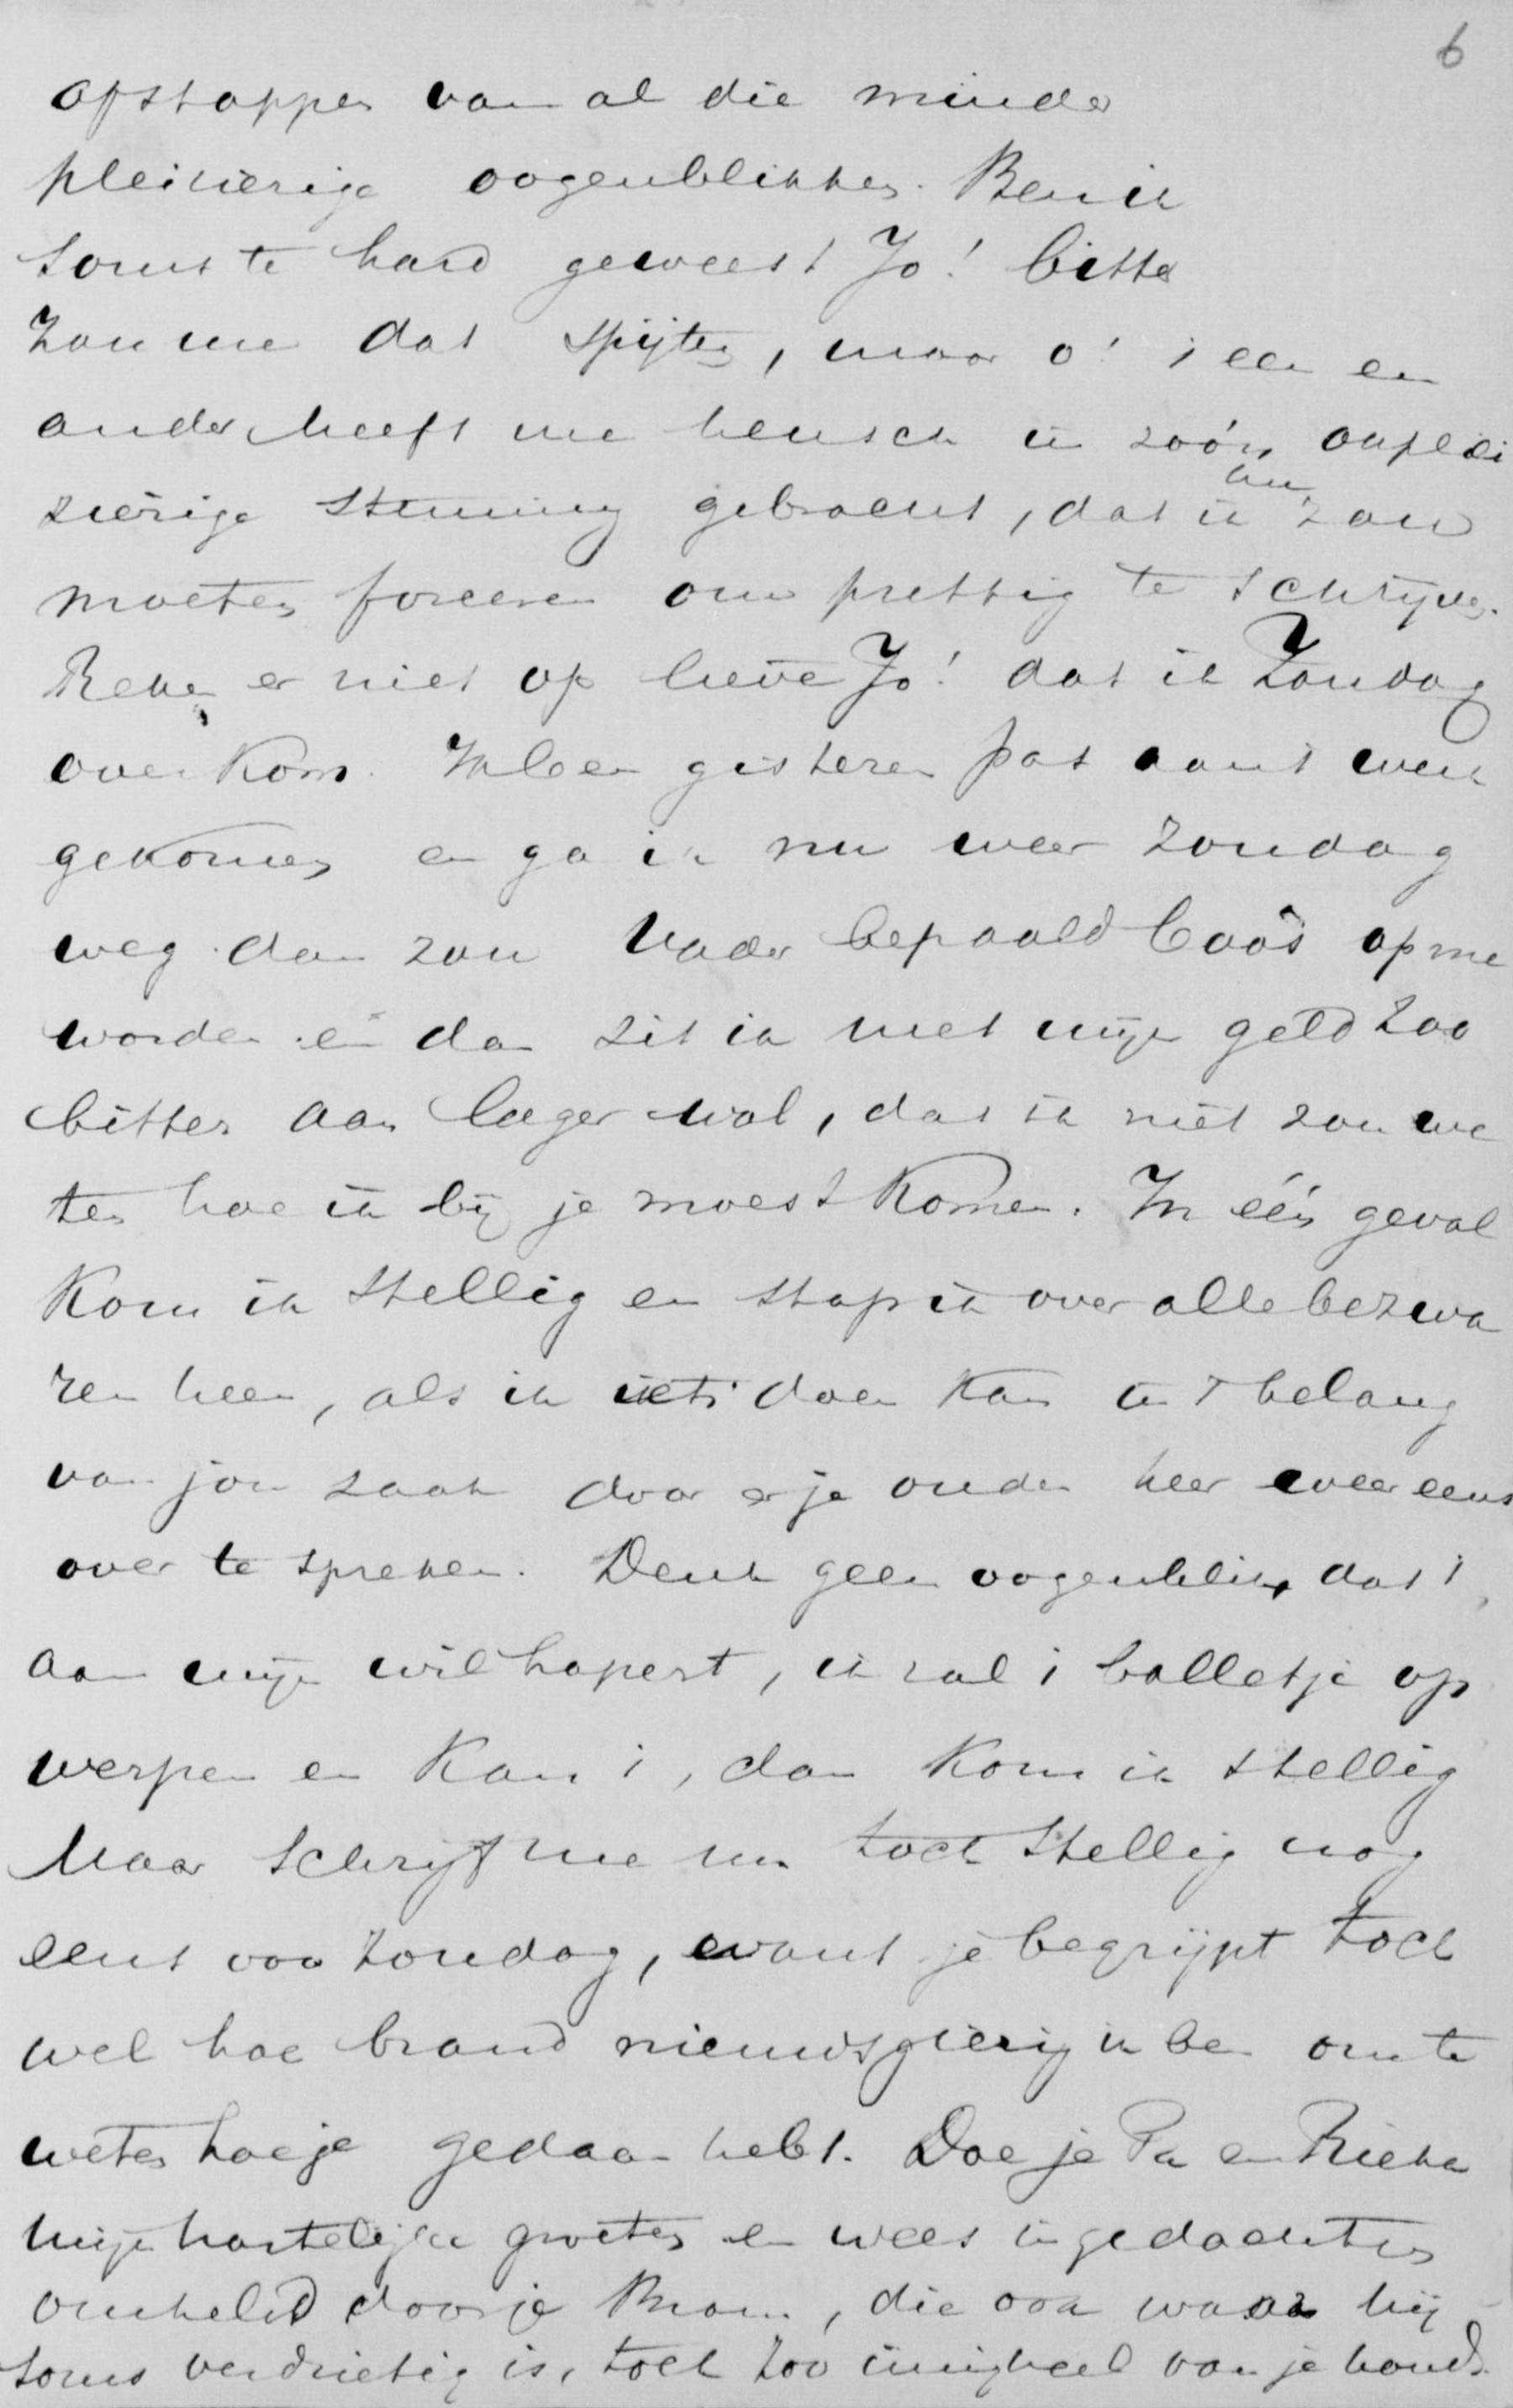 6
afstappen van al die minder
pleizierige oogenblikken. Ben ik
soms te hard geweest Jo! bitter
zou me dat spijten, maar o! 't een en
ander heeft me heusch in zóó'n onplei
zierige stemming gebracht, dat ik me zou
moeten forceeren om prettig te schrijven.
Reken er niet op lieve Jo! dat ik Zondag
over kom. Ik ben gisteren pas aan 't werk
gekomen en ga ik nu weer Zondag
weg dan zou Vader bepaald boos op me
worden en dan zit ik met mijn geld zoo
bitter aan lager wal, dat ik niet zou we
ten hoe ik bij je moest komen. In één geval
kom ik stellig en stap ik over alle bezwa
ren heen, als ik iets doen kan in 't belang
van jou zaak door er je ouden heer weer eens
over te spreken. Denk geen oogenblik, dat 't
aan mijn wil hapert, ik zal 't balletje op
werpen en kan 't, dan kom ik stellig
Maar schrijf me nu toch stellig nog
eens voor Zondag, want je begrijpt toch
wel hoe brand nieuwsgierig ik ben om te
weten hoe je gedaan hebt. Doe je Pa en Rieka
mijn hartelijke groeten en wees in gedachten
omhelsd door je Bram, die ook waar hij
soms verdrietig is, toch zoo innig veel van je houdt.